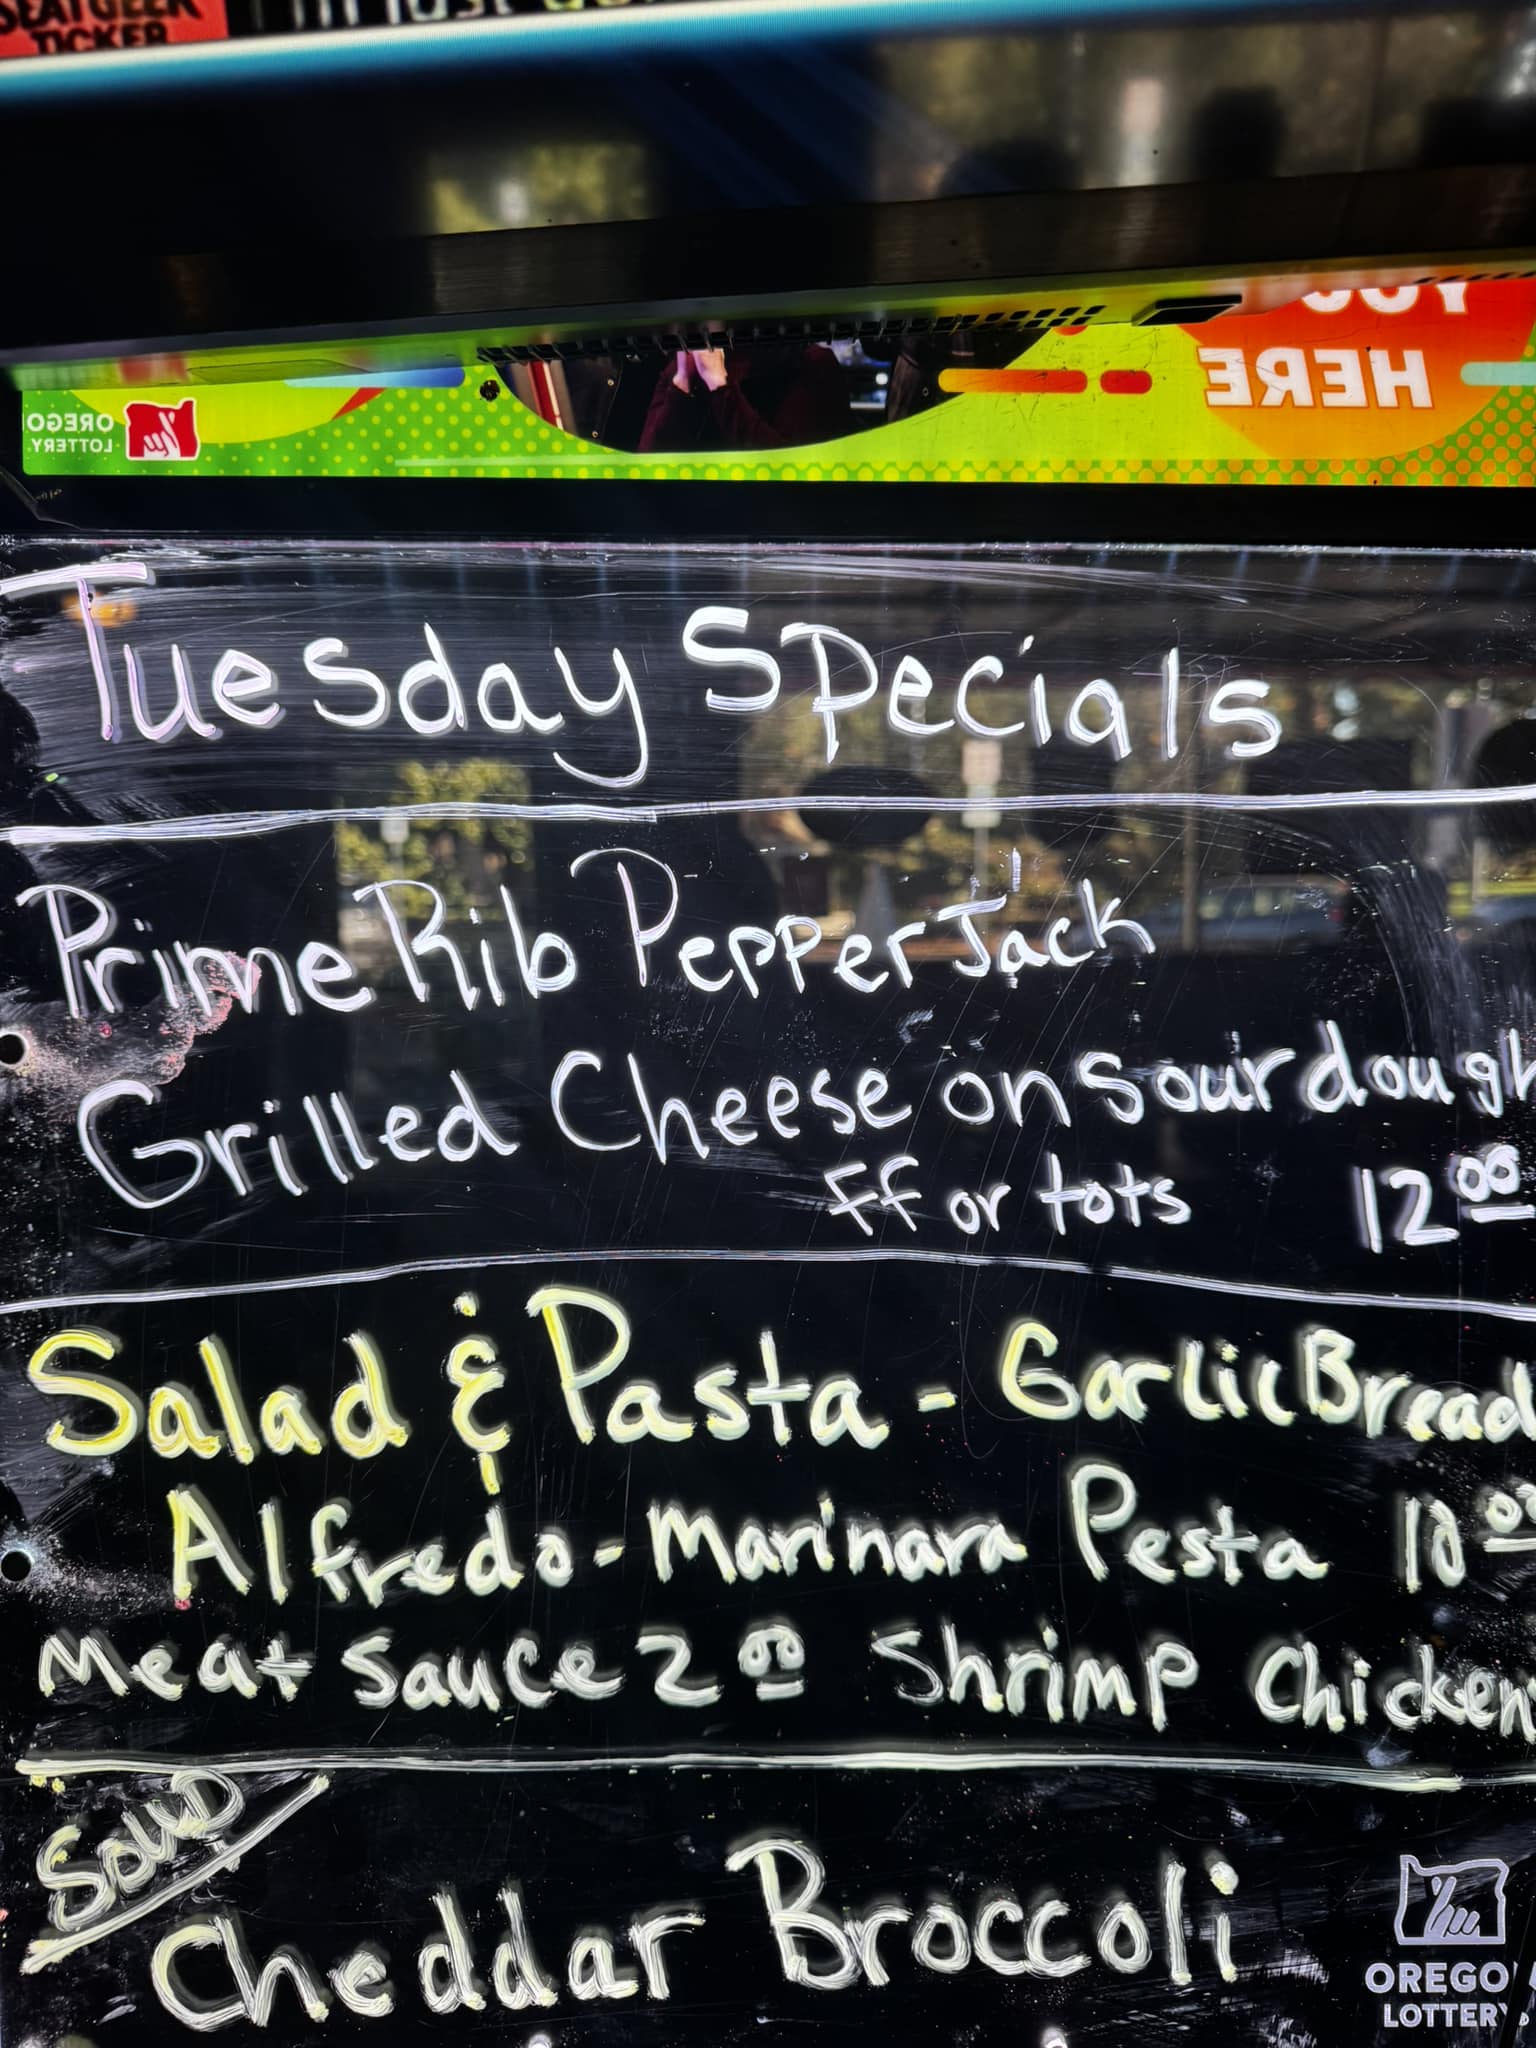 SEATGEEK
TICKER
YOU
HERE
OREGO
LOTTERY
Tuesday Specials
Prime Rib Pepper Jack
Grilled Cheese on Sourdough
FF or tots 12 00
Salad & Pasta - Garlic Bread
Alfredo - Marinara Pesta 10 00
Meat Sauce 2 00 Shrimp Chicken
Soup
Cheddar Broccoli
OREGO
LOTTERY